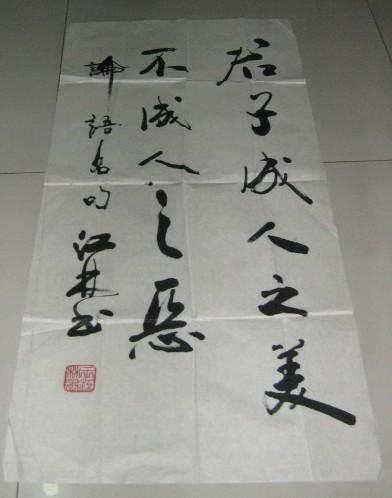 君子成人之美
不成人之惡
論語名句 江林书